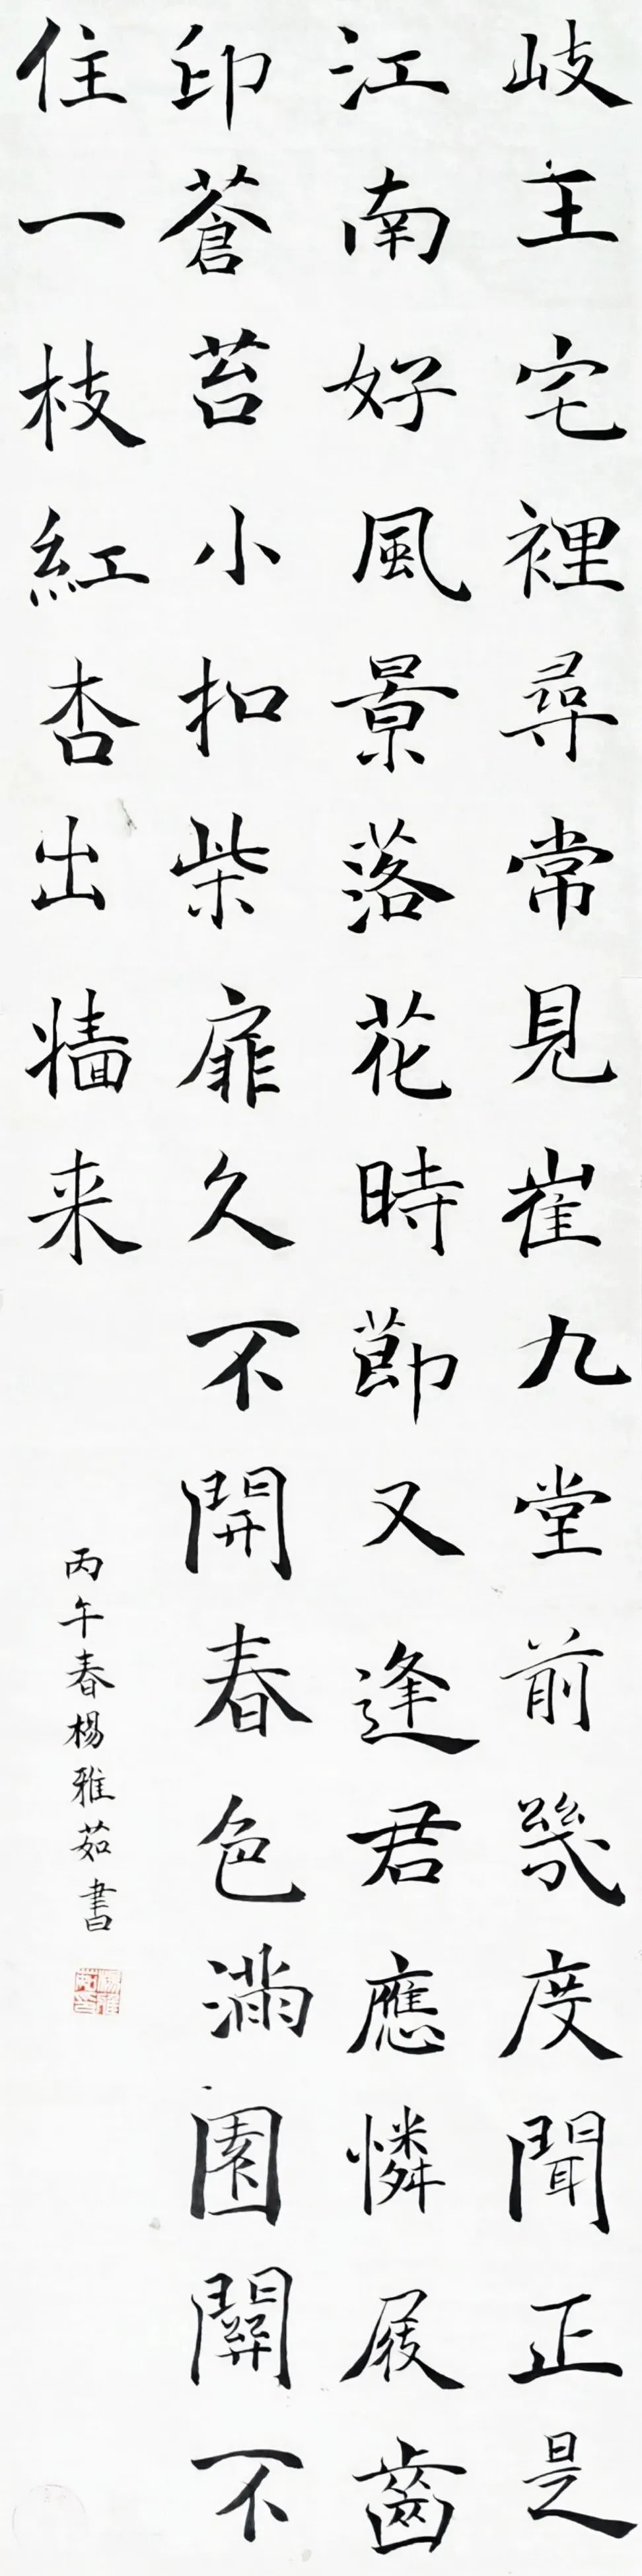 岐王宅裡尋常見崔九堂前幾度聞正是
江南好風景落花時節又逢君應憐屐齒
印蒼苔小扣柴扉久不開春色滿園關不
住一枝紅杏出牆来
丙午春楊雅茹書
楊雅茹印